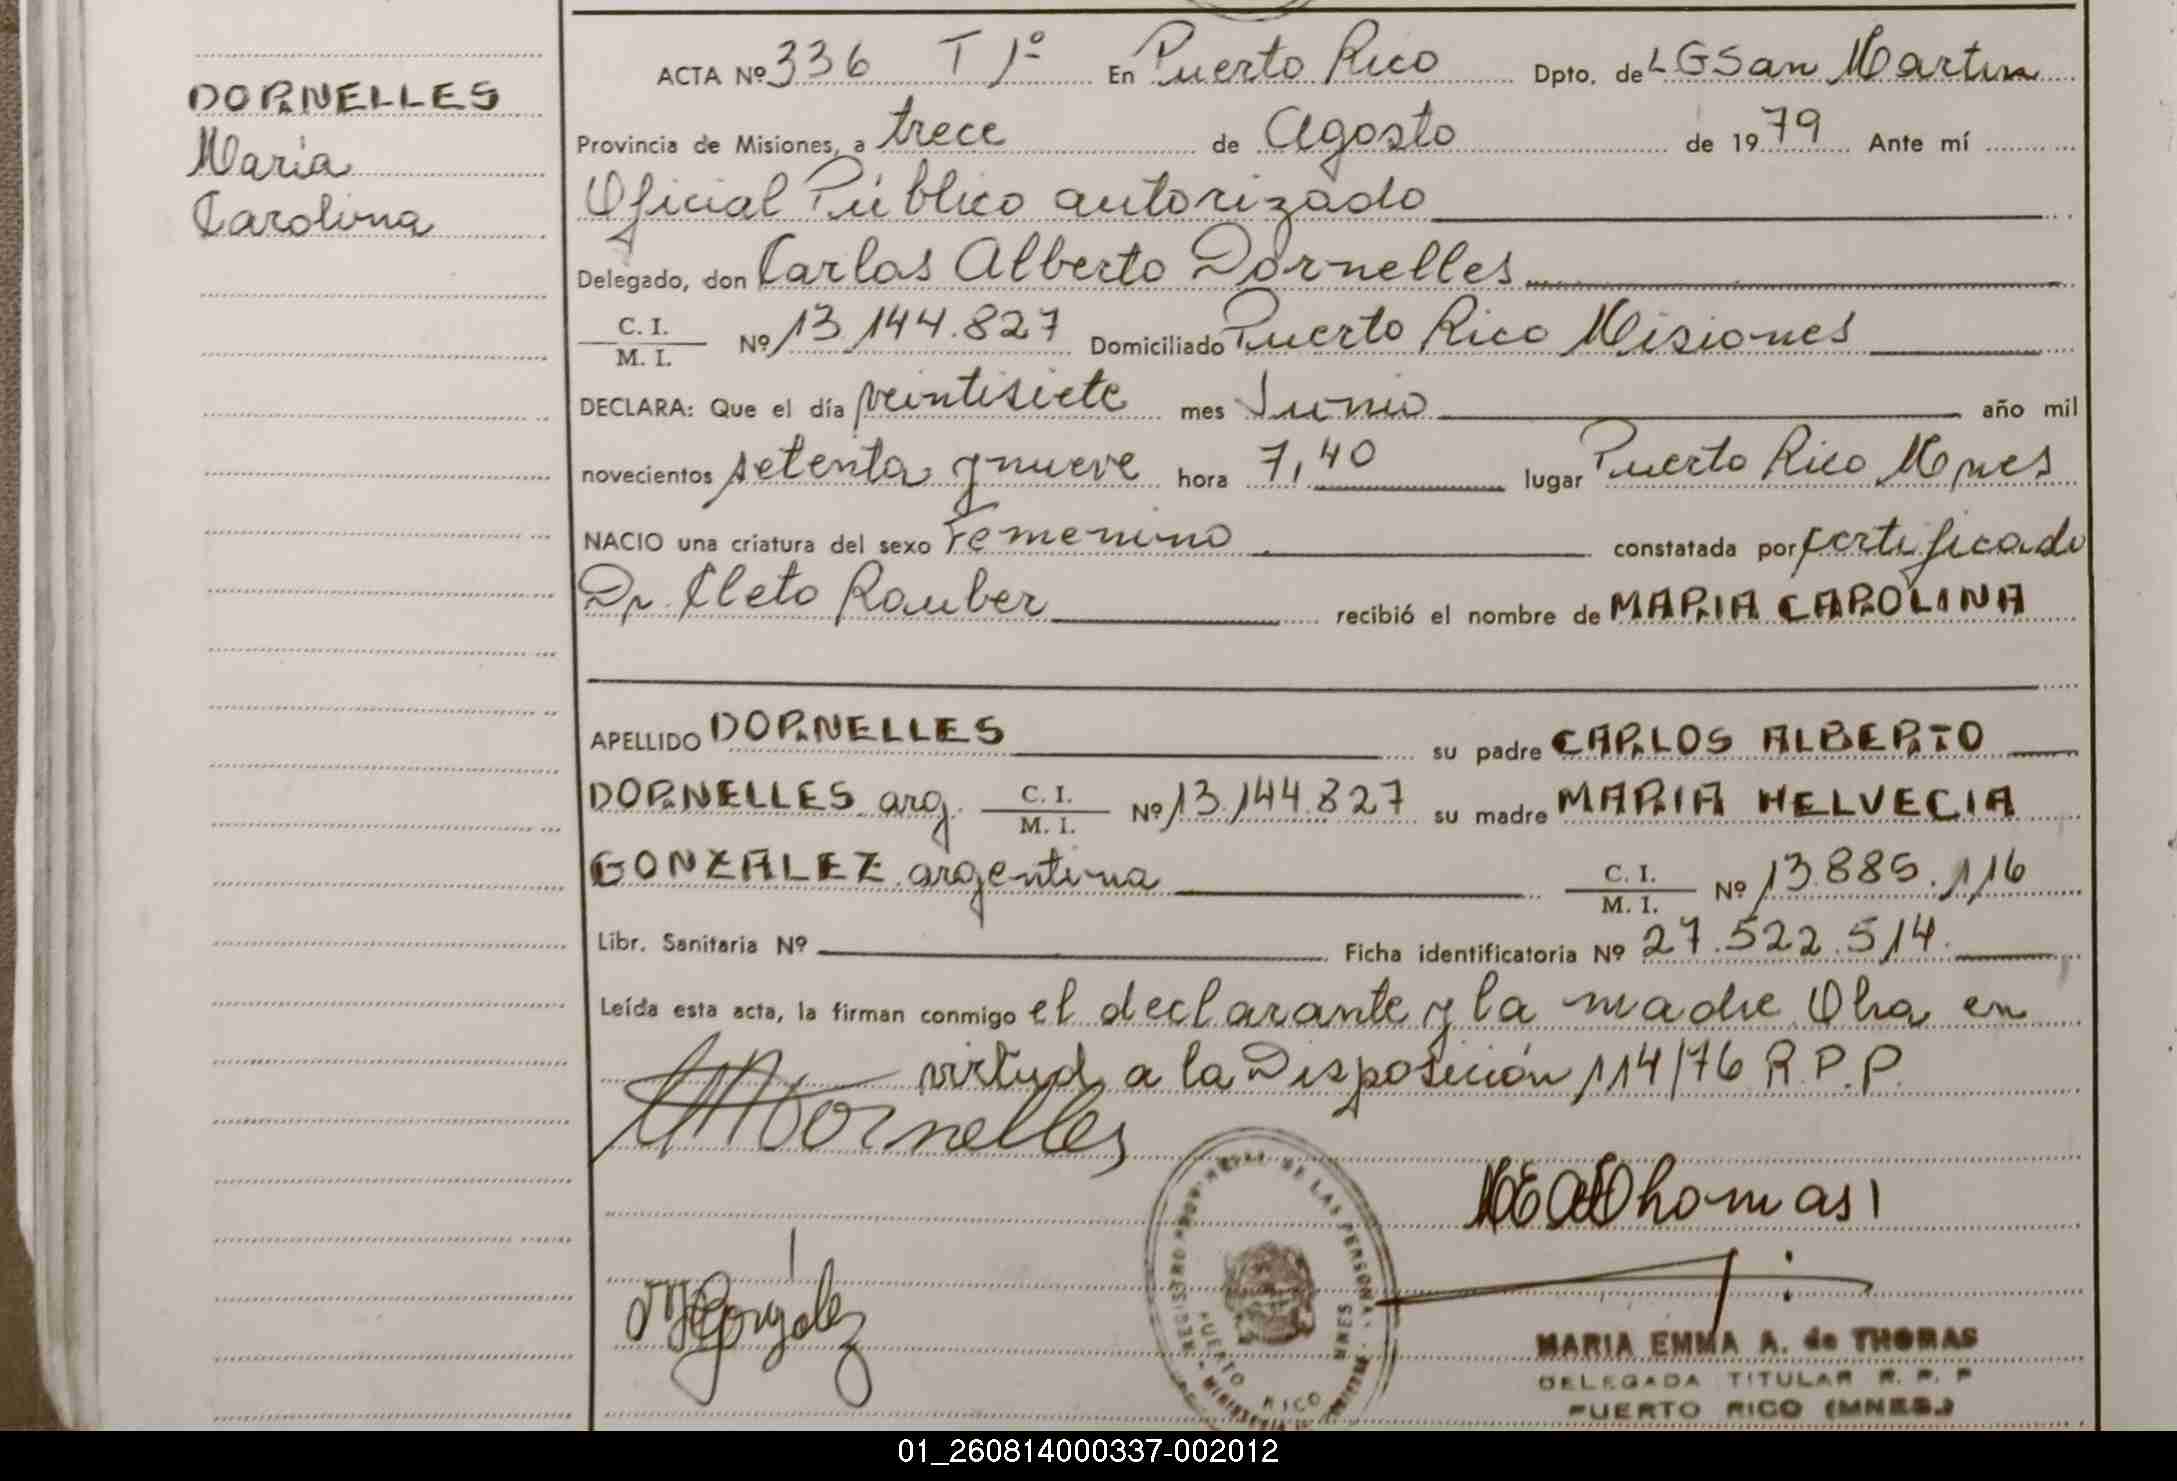 DORNELLES
María
Carolina
ACTA Nº 336 T 1º En Puerto Rico Dpto. de LGSan Martin
Provincia de Misiones, a trece de Agosto de 1979 Ante mí
Oficial Público autorizado
Delegado, don Carlos Alberto Dornelles
C. I.
M. I.
Nº 13.144.827 Domiciliado Puerto Rico Misiones
DECLARA: Que el día veintisiete mes Junio año mil
novecientos setenta y nueve hora 7,40 lugar Puerto Rico Mnes
NACIO una criatura del sexo Femenino constatada por certificado
Dr. Cleto Rauber recibió el nombre de MARIA CAROLINA
APELLIDO DORNELLES su padre CARLOS ALBERTO
DORNELLES arg. C. I. M. I. Nº 13.144.827 su madre MARIA HELVECIA
GONZALEZ argentina C. I. M. I. Nº 13.885.116
Libr. Sanitaria Nº Ficha identificatoria Nº 27.522.514.
Leída esta acta, la firman conmigo el declarante y la madre en
virtud a la Disposición 114/76 R.P.P.
Dornelles
Thomas
González
REGISTRO PROVINCIAL DE LAS PERSONAS
PUERTO RICO
MNES
MARIA EMMA A. de THOMAS
DELEGADA TITULAR R. P. P
PUERTO RICO (MNES.)
01_260814000337-002012